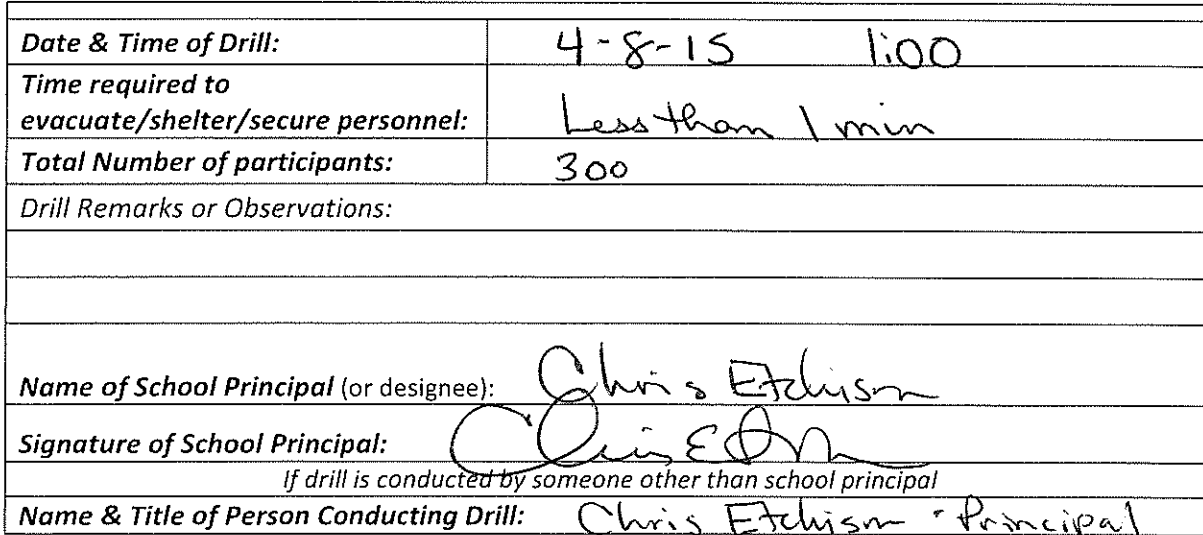 Date & Time of Drill: 4-8-15 1:00
Time required to
evacuate/shelter/secure personnel: Less than 1 min
Total Number of participants: 300
Drill Remarks or Observations:
Name of School Principal (or designee): Chris Etchison
Signature of School Principal: Chris
If drill is conducted by someone other than school principal
Name & Title of Person Conducting Drill: Chris Etchison - Principal